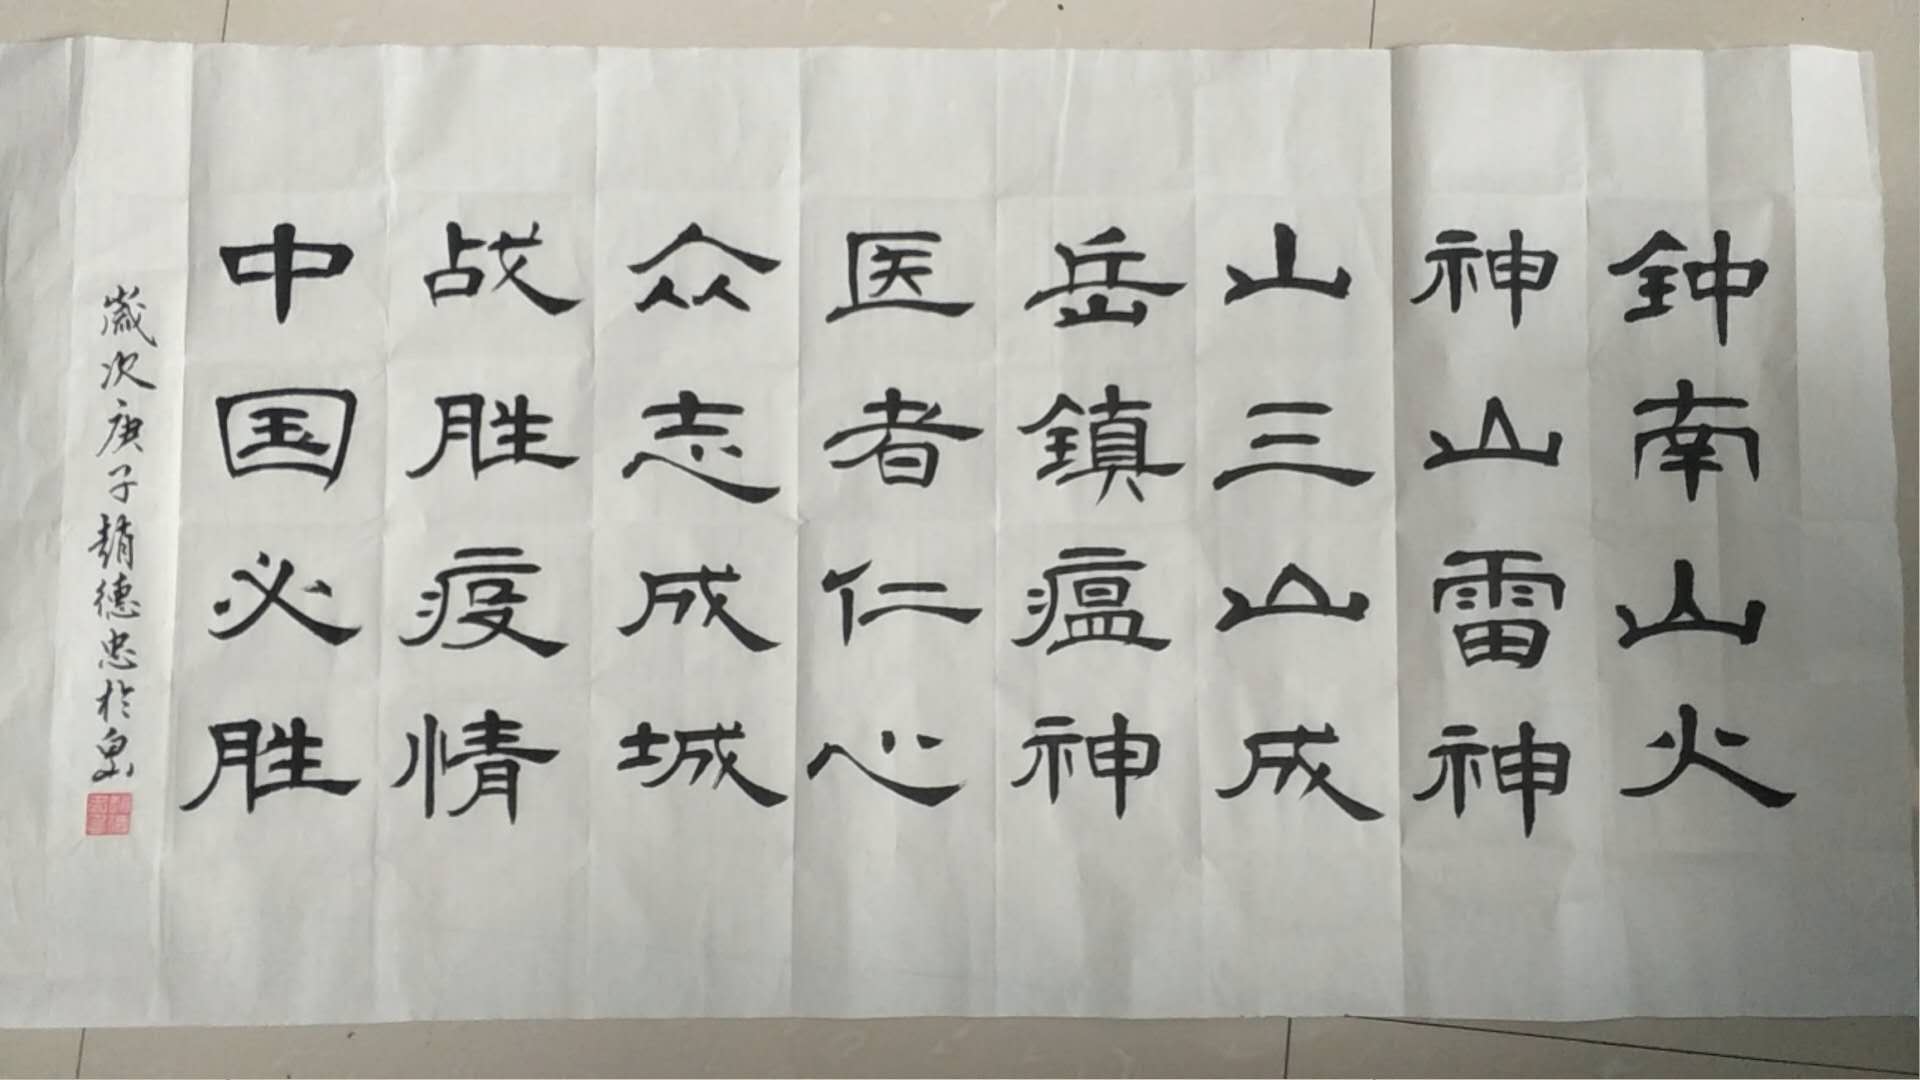 钟南山火
神山雷神
山三山成
岳鎮瘟神
医者仁心
众志成城
战胜疫情
中国必胜
歲次庚子趙德忠於泉